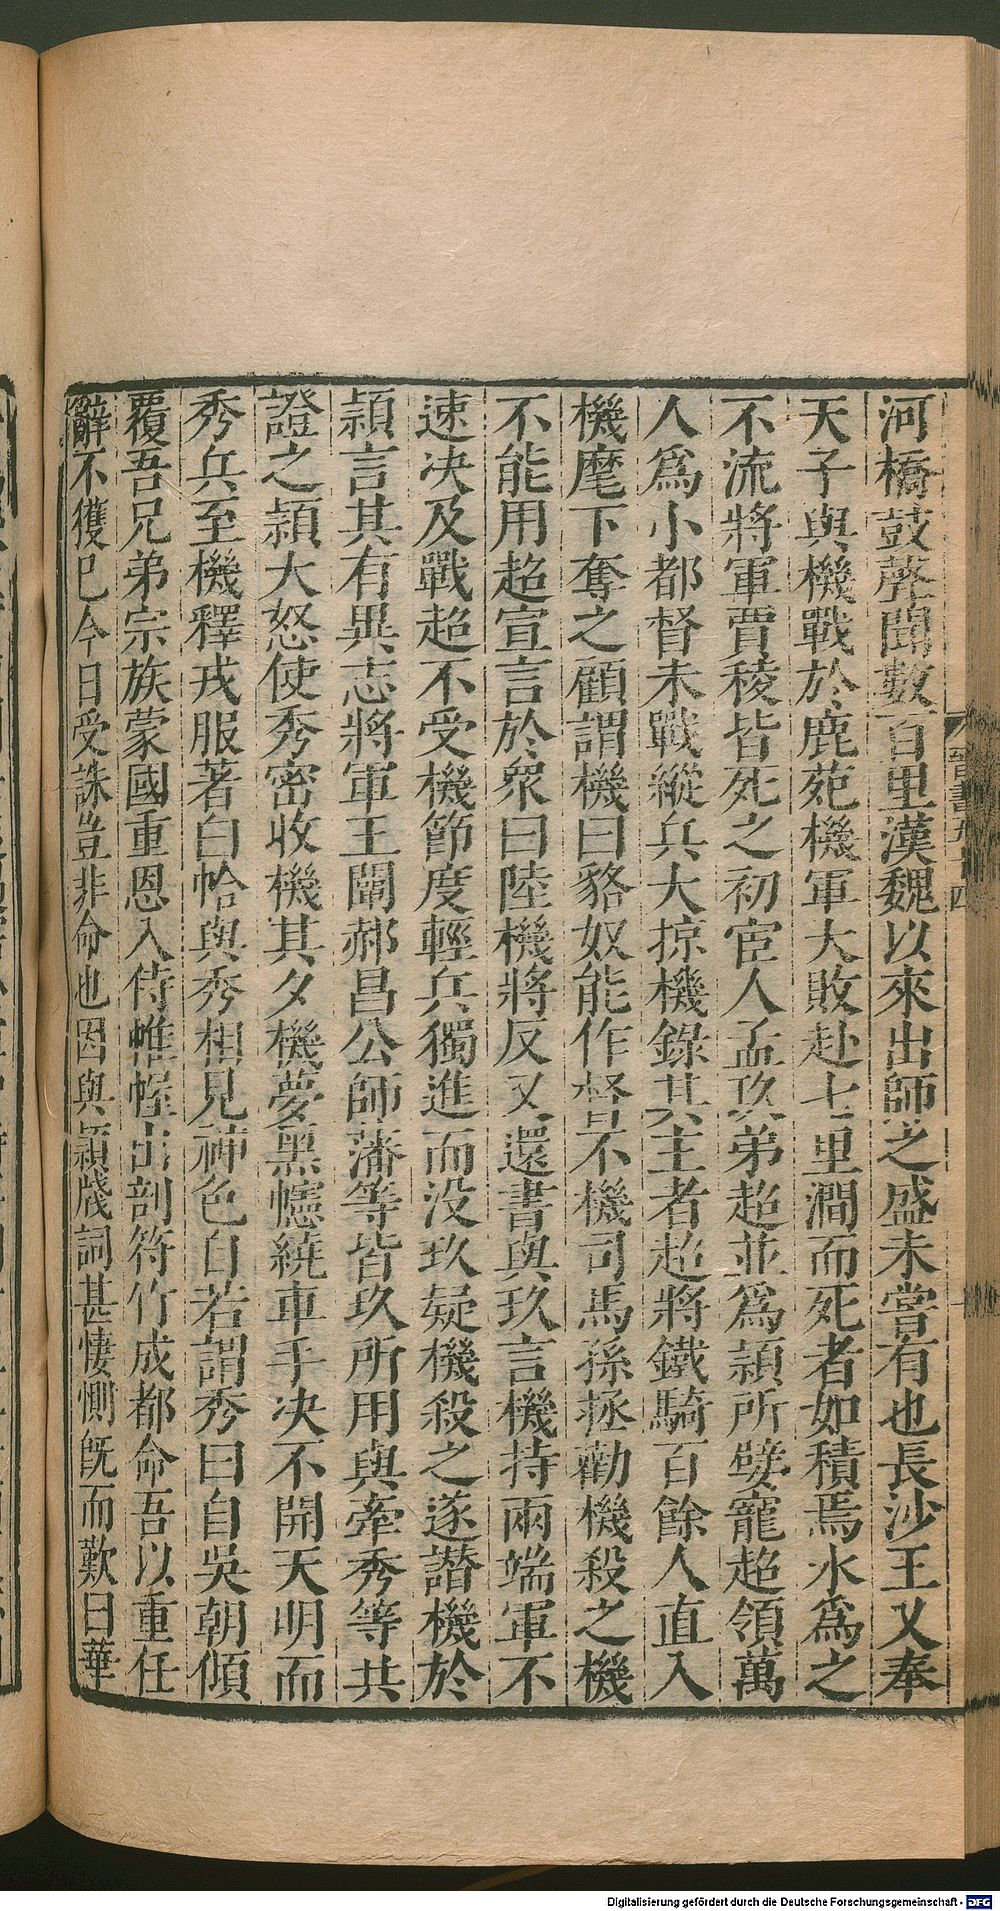 河橋鼓聲聞數百里漢魏以來出師之盛未嘗有也長沙王乂奉
天子與機戰於鹿苑機軍大敗赴七里澗而死者如積焉水爲之
不流將軍賈稜皆死之初宦人孟玖弟超並爲穎所嬖寵超領萬
人爲小都督未戰縱兵大掠機錄其主者超將鐵騎百餘人直入
機麾下奪之顧謂機曰貉奴能作督不機司馬孫拯勸機殺之機
不能用超宣言於衆曰陸機將反又還書與玖言機持兩端軍不
速決及戰超不受機節度輕兵獨進而没玖疑機殺之遂譖機於
穎言其有異志將軍王闡郝昌公師藩等皆玖所用與牽秀等共
證之穎大怒使秀密收機其夕機夢黑幰繞車手決不開天明而
秀兵至機釋戎服著白帢與秀相見神色自若謂秀曰自吳朝傾
覆吾兄弟宗族蒙國重恩入侍帷幄出剖符竹成都命吾以重任
辭不獲已今日受誅豈非命也因與穎牋詞甚悽惻既而歎曰華
晉書五十四
Digitalisierung gefördert durch die Deutsche Forschungsgemeinschaft - DFG